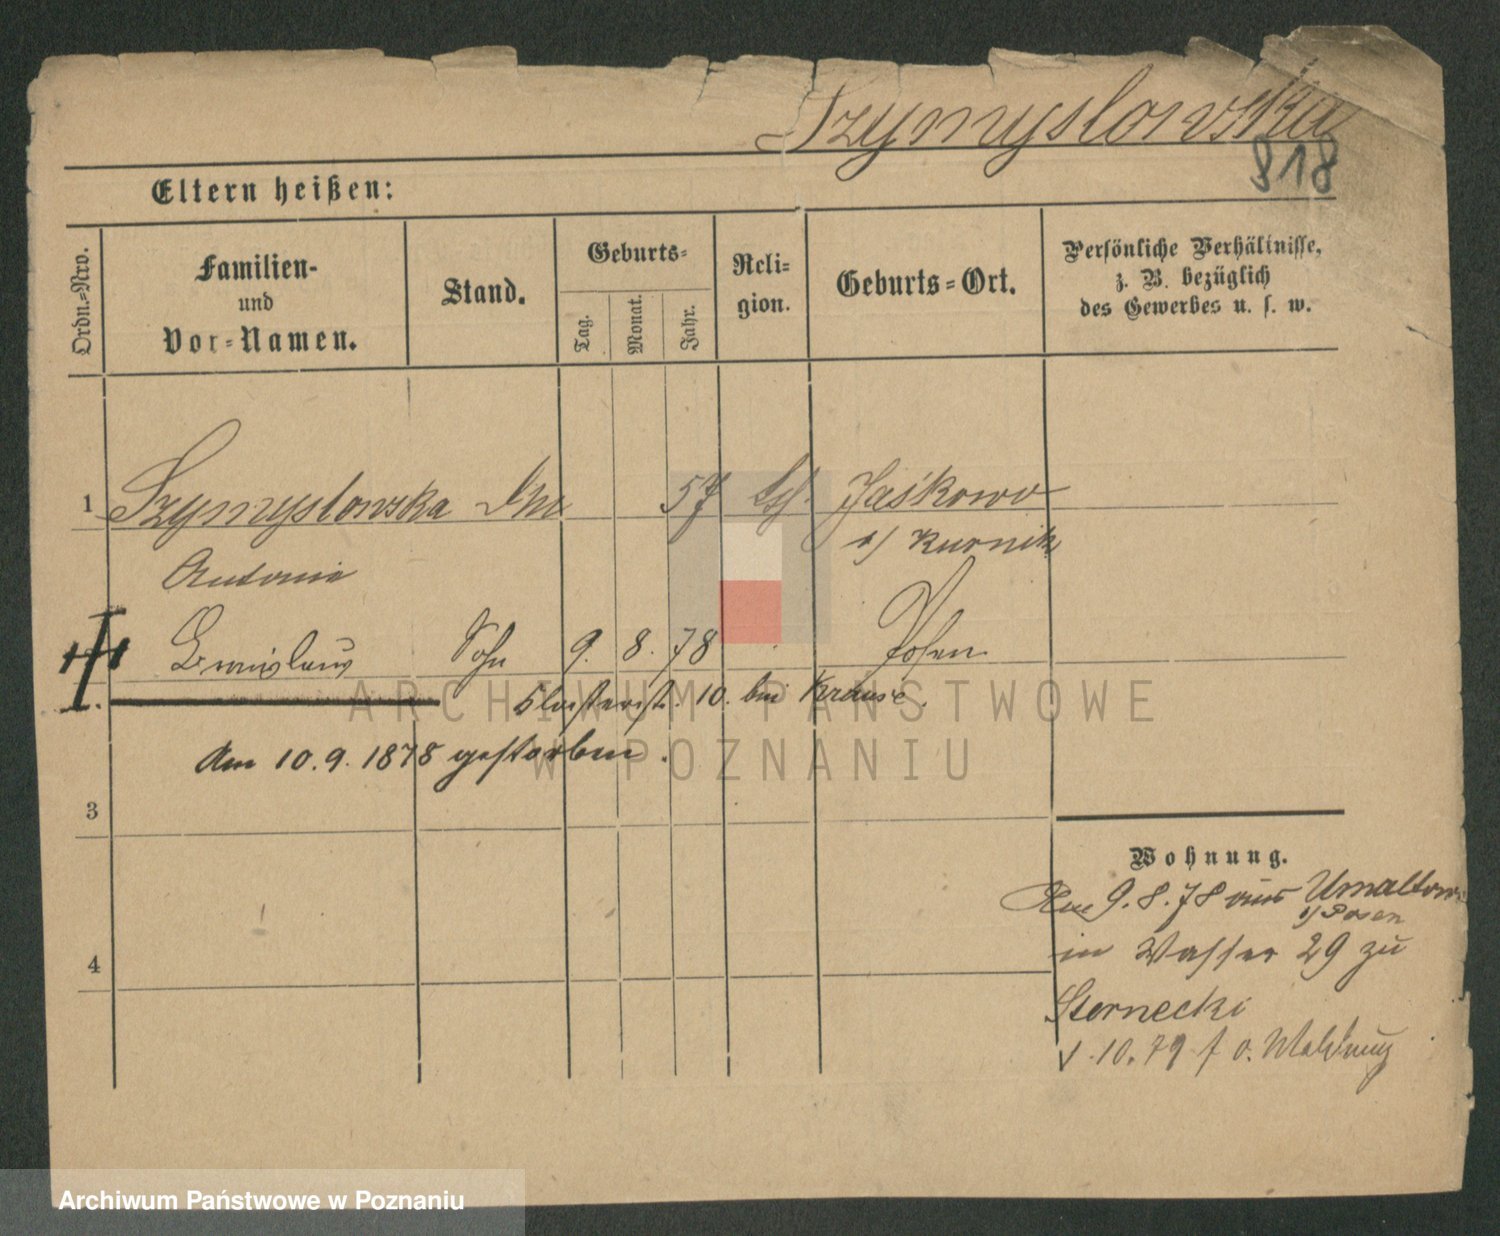 Szymyslowska
818
Eltern heißen:
Ordn.-Nro.
Familien-
und
Vor-Namen.
Stand.
Geburts-
Tag.
Monat.
Jahr.
Reli-
gion.
Geburts-Ort.
Persönliche Verhältnisse,
z. B. bezüglich
des Gewerbes u. s. w.
1 Szymyslowska 57 Jaśkowo
Kurnik
Antonie
Sohn 9. 8. 78 Posen
10. bei Krause.
Am 10.9.1878 gestorben.
3
4
Wohnung.
Am 9.8.78 aus Umaltowo
b/ Posen
in Wasser 29 zu
Sternecki
1.10.79 f o. Meldung
ARCHIWUM PAŃSTWOWE
W POZNANIU
Archiwum Państwowe w Poznaniu